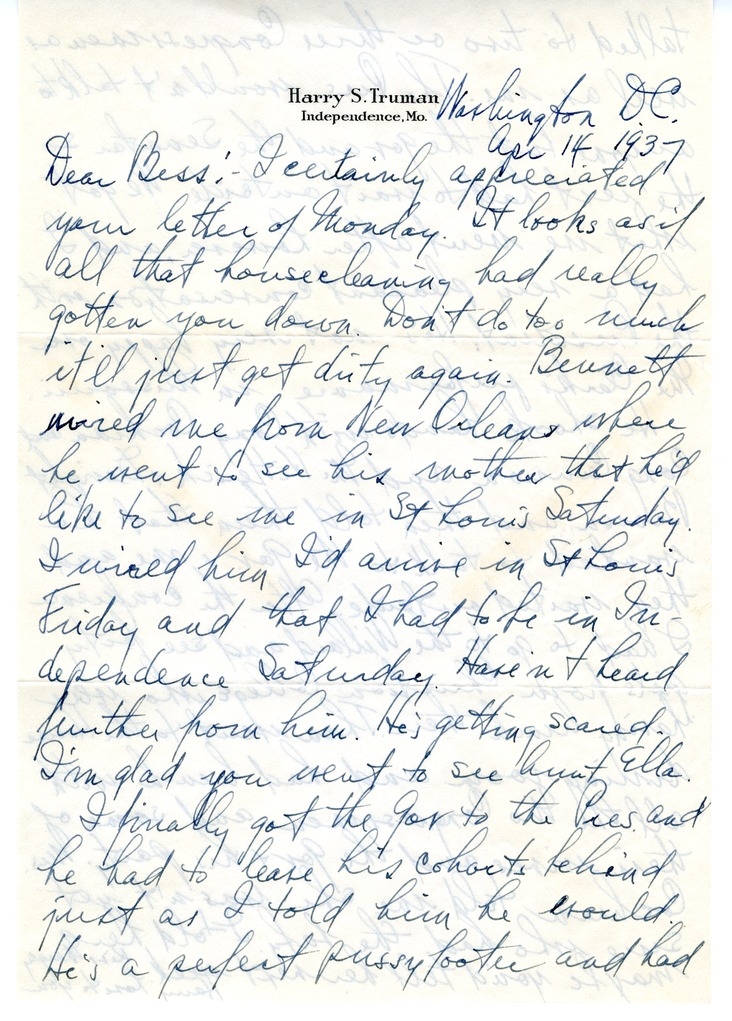 Harry S. Truman
Independence, Mo.
Washington D.C.
Apr 14 1937
Dear Bess:- I certainly appreciated
your letter of Monday. It looks as if
all that housecleaning had really
gotten you down. Don't do too much
it'll just get dirty again. Bennett
wired me from New Orleans where
he went to see his mother that he'd
like to see me in St Louis Saturday.
I wired him I'd arrive in St Louis
Friday and that I had to be in In-
dependence Saturday. Haven't heard
further from him. He's getting scared.
I'm glad you went to see Aunt Ella.
I finally got the Gov to the Pres. and
he had to leave his cohorts behind
just as I told him he would.
He's a perfect pussyfooter and had